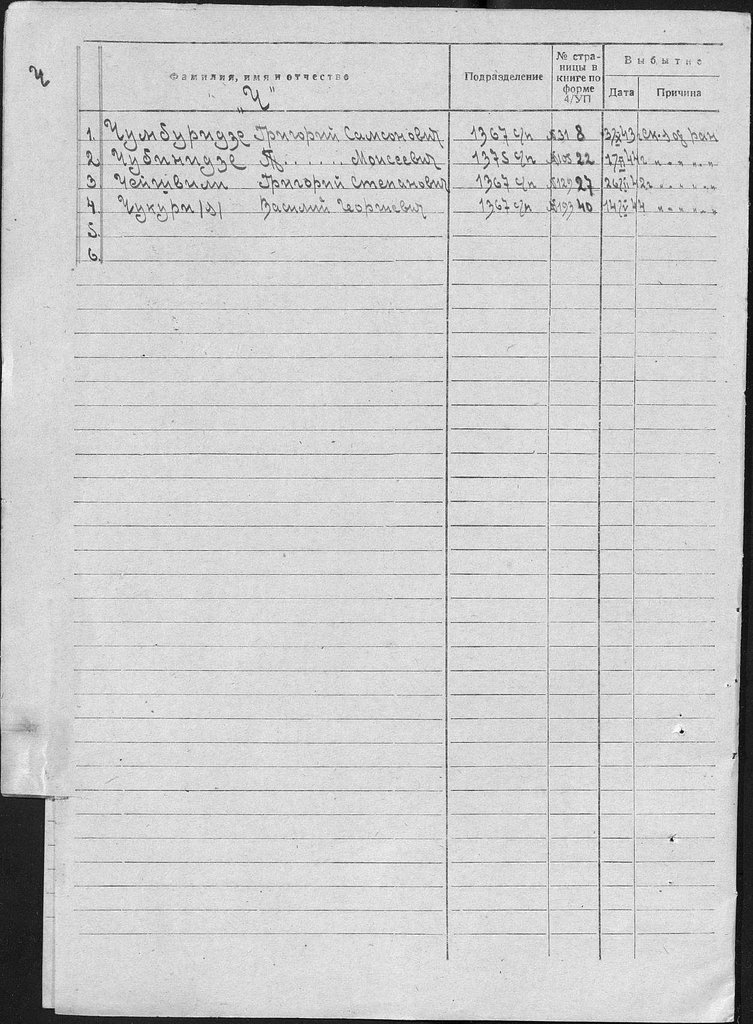 Ч
Фамилия, имя и отчество Подразделение № страницы в книге по форме 4/УП Выбытие
Дата Причина
„Ч"
1. Чумбуридзе Григорий Самсонович 1367 с/п №31 8 43 ск. от ран
2. Чубинидзе Моисеевич 1378 с/п №108 22 44 " " "
3. Григорий Степанович 1367 с/п №129 27 26 42г " " "
4. Чукури/я/ Василий Георгиевич 1367 с/п №193 40 14 44 " " "
5.
6.